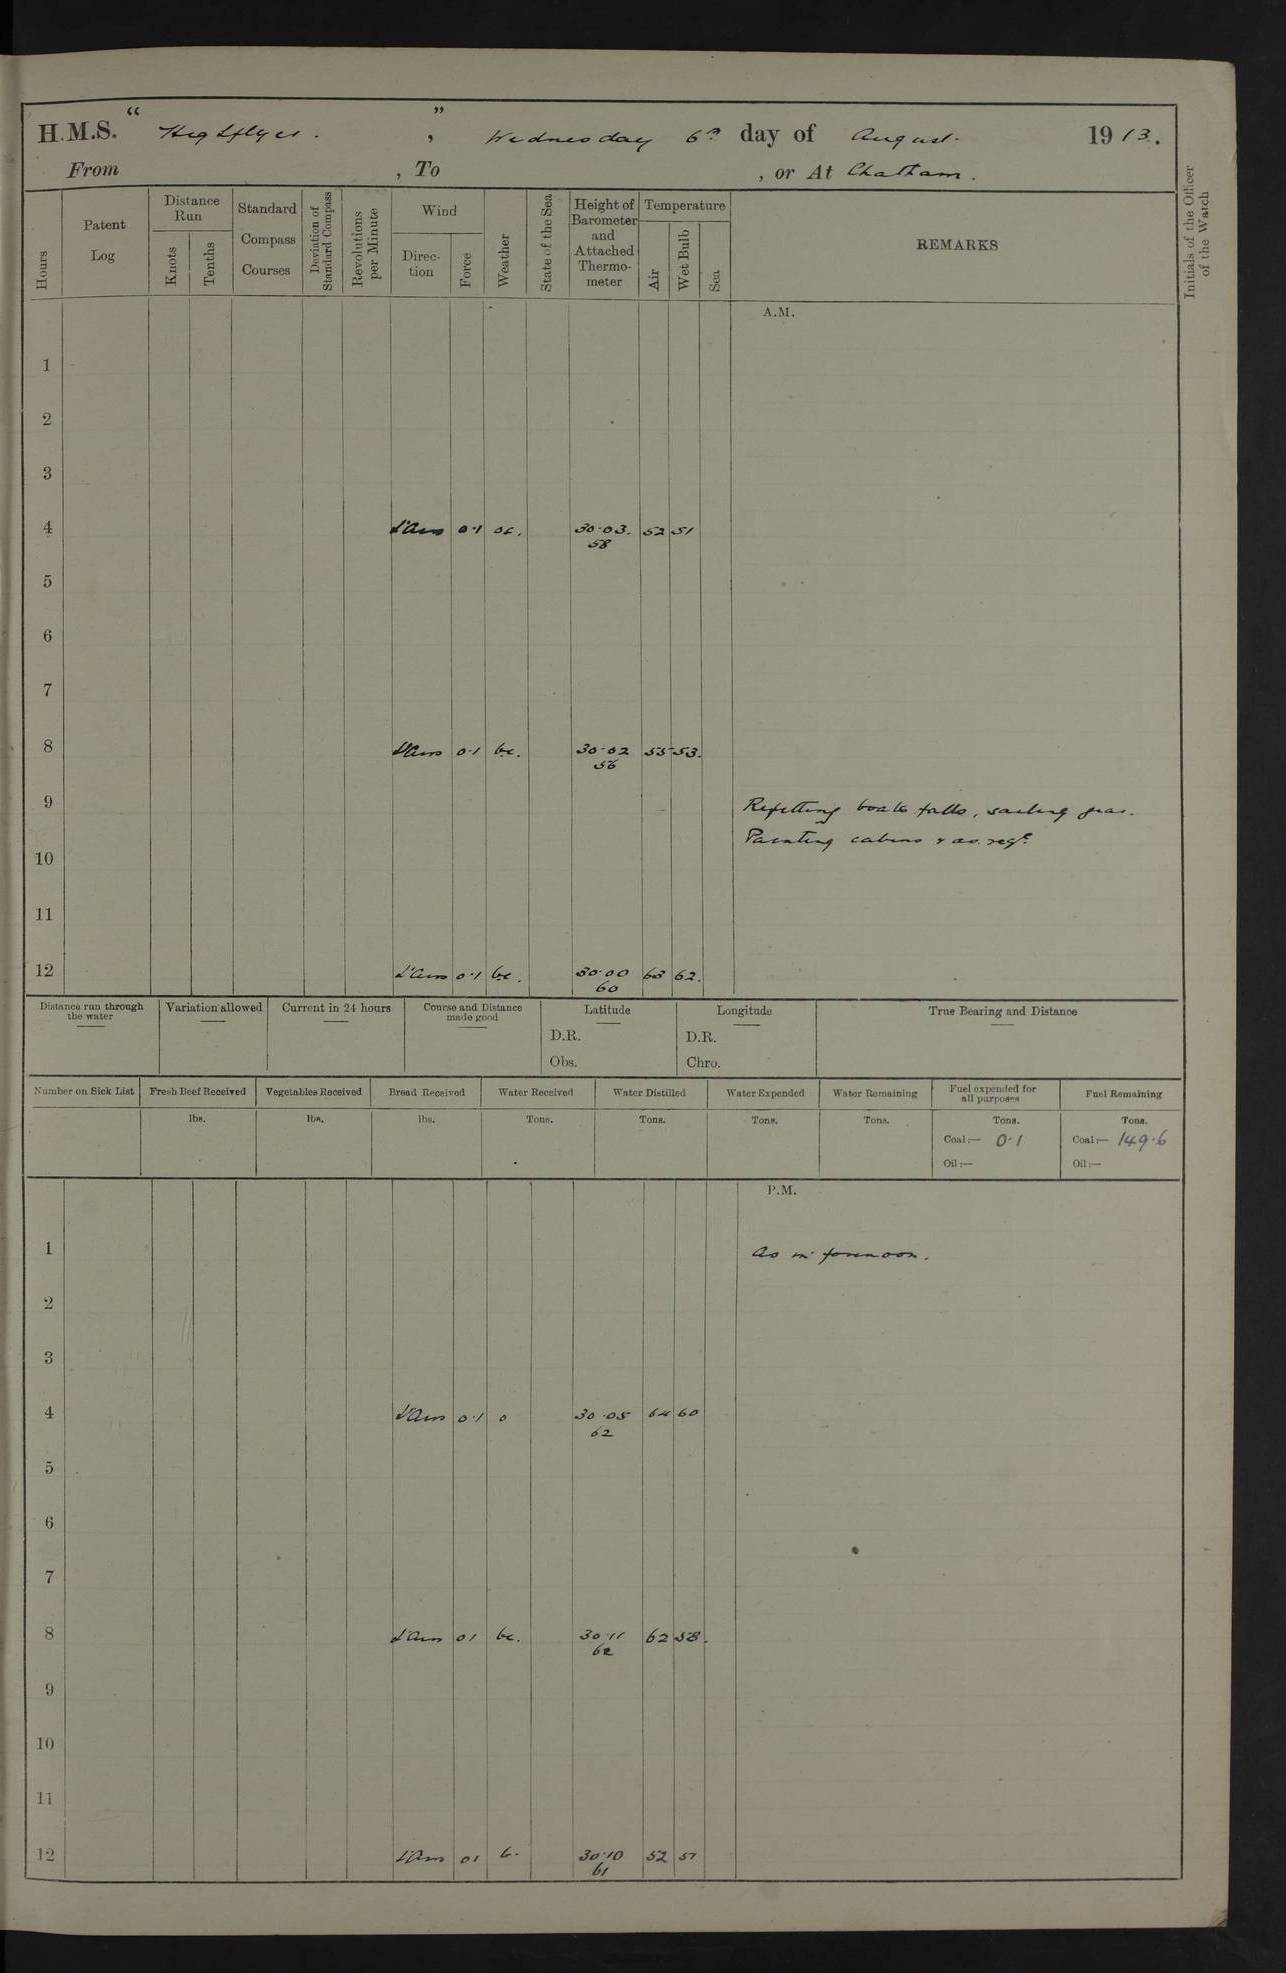 H.M.S. “ Highflyer. ” , Wednesday 6th day of August. 1913.
From , To , or At Chatham.
Hours
Patent Log
Distance Run
Knots
Tenths
Standard Compass Courses
Deviation of Standard Compass
Revolutions per Minute
Wind
Direction
Force
Weather
State of the Sea
Height of Barometer and Attached Thermometer
Temperature
Air
Wet Bulb
Sea
REMARKS
Initials of the Officer of the Watch
A.M.
1
2
3
4 L'Airs 0·1 oc. 30·03. 52 51
58
5
6
7
8 L'Airs 0·1 bc. 30·02 55 53.
56
9 Refitting boats falls, sailing gear.
Painting cabins & as reqd.
10
11
12 L'Airs 0·1 bc. 30·00 63 62.
60
Distance run through the water
Variation allowed
Current in 24 hours
Course and Distance made good
Latitude
D.R.
Obs.
Longitude
D.R.
Chro.
True Bearing and Distance
Number on Sick List
Fresh Beef Received
Vegetables Received
Bread Received
Water Received
Water Distilled
Water Expended
Water Remaining
Fuel expended for all purposes
Fuel Remaining
lbs. lbs. lbs. Tons. Tons. Tons. Tons. Tons. Tons.
Coal:— 0·1 Coal:— 149·6
Oil:— Oil:—
P.M.
1 As in forenoon.
2
3
4 L'Airs 0·1 o 30·05 64 60
62
5
6
7
8 L'Airs 01 bc. 30·11 62 58.
62
9
10
11
12 L'Airs 01 b. 30·10 52 51
61